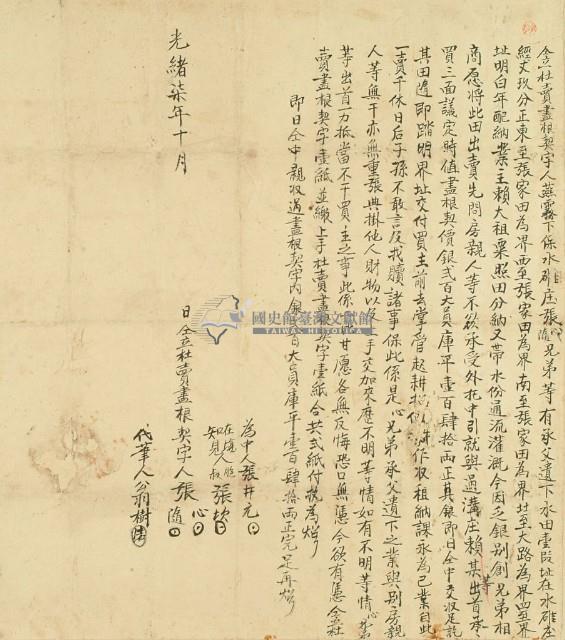 仝立杜賣盡根契字人燕霧下保水碓庄張心隨兄弟等有承父遺下水田壹段址在水碓庄
經丈玖分正東至張家田為界西至張家田為界南至張家田為界北至大路為界四至界
址明白年配納業主賴大租粟照田分納又帶水份通流灌溉今因乏銀別創兄弟相
商愿將此田出賣先問房親人等不欲承受外托中引就與過溝庄賴其等出首承
買三面議定時值盡根契價銀弍百大員庫平壹百肆拾兩正其銀即日仝中交收足訖
其田隨即踏明界址交付買主前去掌管起耕招佃耕作收租納課永為己業自此
一賣千休日后子孫不敢言及找贖諸事保此係是心兄弟承父遺下之業與別房親
人等無干亦無重張典掛他人財物以及手交加來歷不明等情如有不明等情心弟
等出首一力抵當不干買主之事此係甘愿各無反悔恐口無憑今欲有憑仝立杜
賣盡根契字壹紙並繳上手杜賣盡契字壹紙合共弍紙付執為炤
即日仝中親收過盡根契字內銀百大員庫平壹百肆拾兩正完足再炤
為中人張井元
在塲
知見人叔張
光緒柒年十月 日仝立杜賣盡根契字人張心隨
代筆人翁樹
國史館臺灣文獻館
TAIWAN HISTORICA